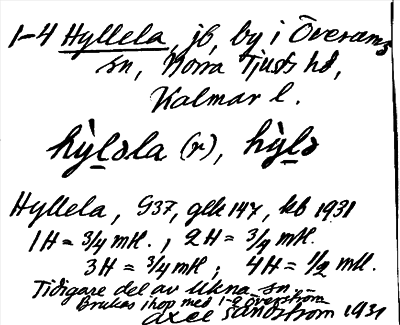 1-4 Hyllela, jb, by i Överums
sn, Norra Tjusts hd,
Kalmar l.
hỳləla (r), hỳlə
Hyllela, G37, gek 147, kb 1931
1H = 3/4 mtl., 2H = 3/4 mtl.
3H = 3/4 mtl; 4H = 1/2 mtl.
Tidigare del av Ukna sn
Brukas ihop med 1-2 Överström
Axel Sandström 1931